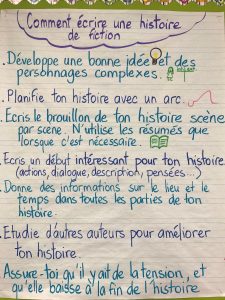 Comment écrire une histoire
de fiction
. Développe une bonne idée et des
personnages complexes.
. Planifie ton histoire avec un arc.
. Ecris le brouillon de ton histoire scène
par scène. N'utilise les résumés que
lorsque c'est nécessaire.
. Ecris un début intéressant pour ton histoire
(actions, dialogue, description, pensées...)
. Donne des informations sur le lieu et le
temps dans toutes les parties de ton
histoire.
. Etudie d'autres auteurs pour améliorer
ton histoire.
. Assure-toi qu'il y ait de la tension, et
qu'elle baisse à la fin de l'histoire.